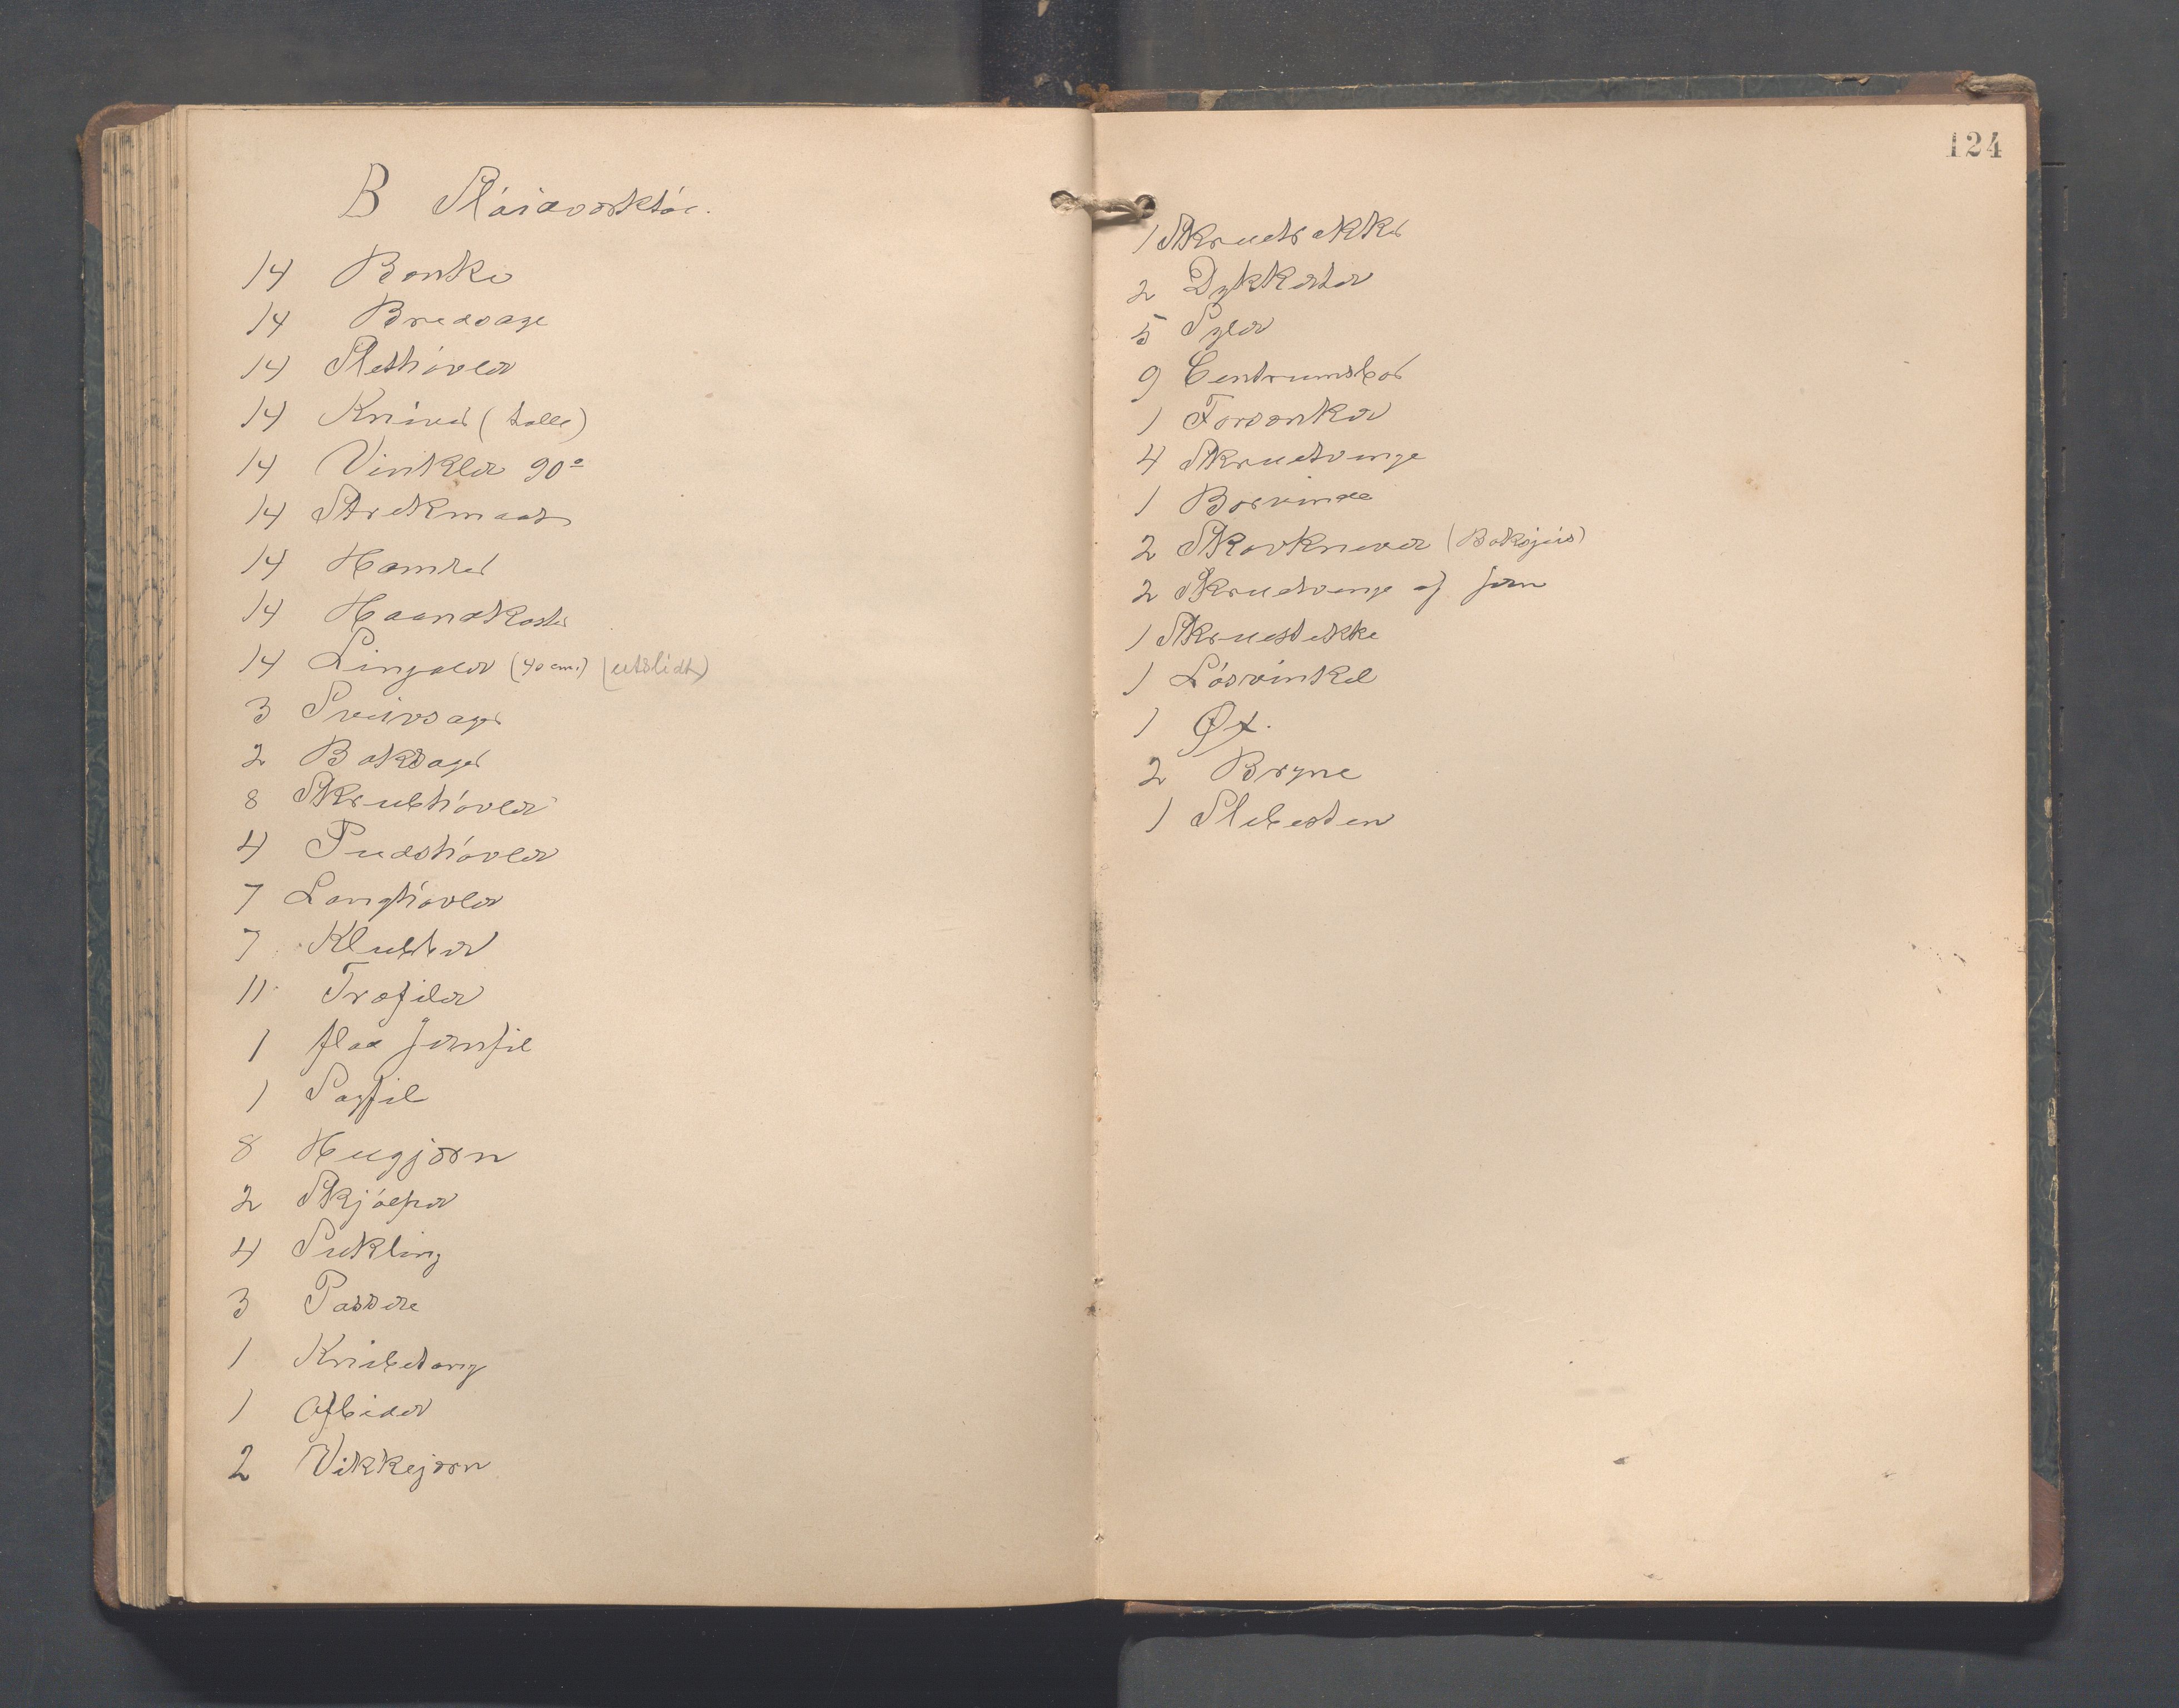 B Slöidverktöi.
14 Benke
14 Bredsage
14 Slethövler
14 Kniver (tolle)
14 Vinkler 90°
14 Strekmaat
14 Hamrer
14 Haandkoster
14 Linjaler (40 cm.) (utslidt)
3 Sveivsager
2 Baksager
8 Skrubhövler
4 Pudshövler
7 Langhövler
7 Klubber
11 Træfiler
1 flad Jernfil
1 Sagfil
8 Hugjern
2 Skjölper
4 Sikling
3 Passere
1 Knibetang
1 Afbider
2 Vikkejern
124
1 Skrutrekker
2 Dykkerter
5 Syler
9 Centrumsbor
1 Forsenker
4 Skruetvinge
1 Borvinde
2 Skovkniver
2 Skruetvinge af jern
1 Skruestikke
1 Lösvinkel
1 Øx.
2 Bryne
1 Slibesten